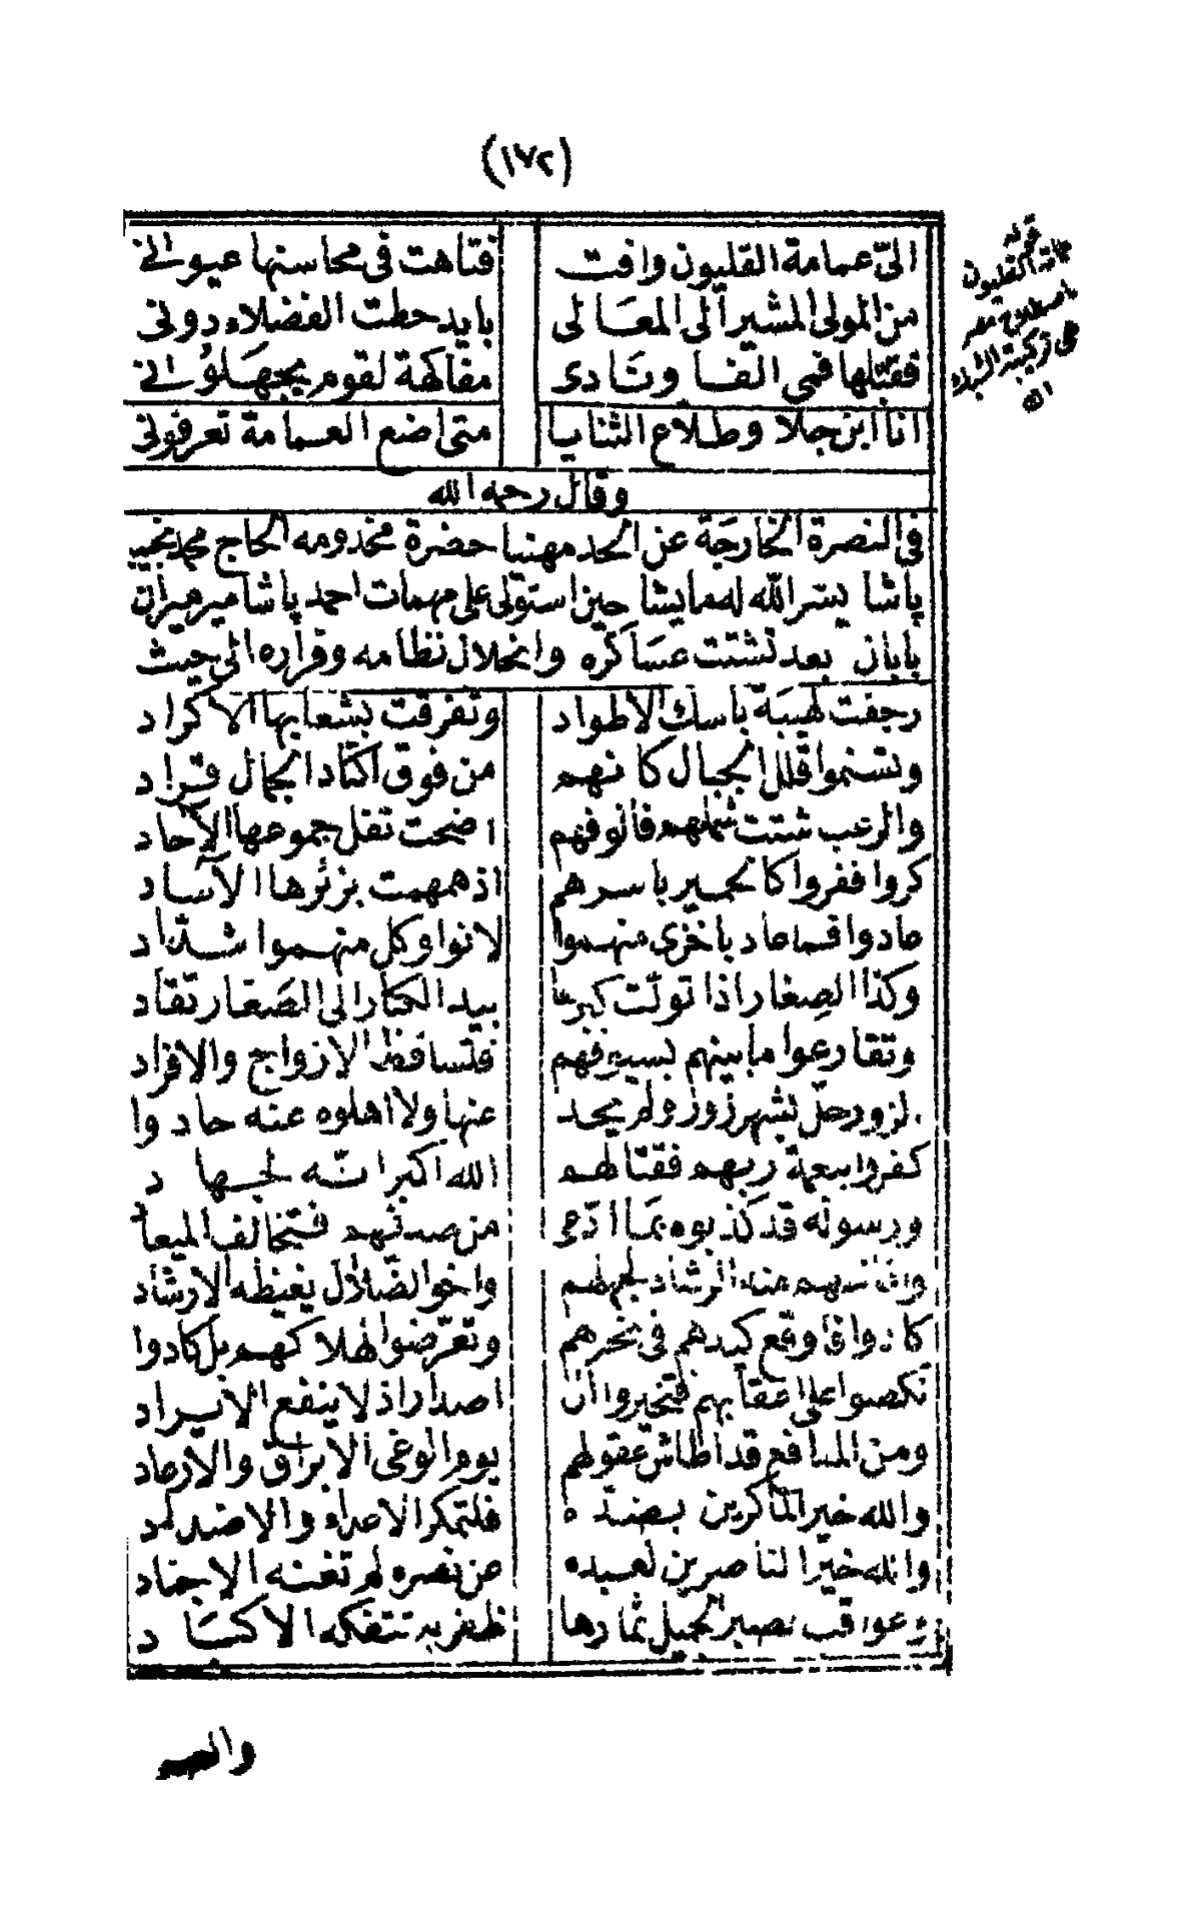 (١٧٢)
الىّ عمامة القليون وافت فتاهت فى محاسنها عيونى
من المولى المشير الى المعالى بايد حطت الفضلاء دونى
فقبّلها فمى الفا ونادى مفاكهة لقوم يجهلونى
انا ابن جلا وطلاع الثنايا متى اضع العمامة تعرفونى
وقال رحمه الله
فى النصرة الخارجة عن الحد مهنيا حضرة مخدومه الحاج محمد نجيب
پاشا يسر الله له مايشا حين استولى على مهمات احمد پاشا ميرميران
بابان بعد تشتت عساكره وانحلال نظامه وفراره الى حيث
رجفت لهيبة باسك الاطواد وتفرقت بشعابها الاكراد
وتسنموا قلل الجبال كانهم من فوق اكتاد الجمال قراد
والرعب شتت شملهم فالوفهم اضحت تفل جموعها الآحاد
كروا ففروا كالحمير باسرهم اذ همهمت بزئرها الآساد
عادوا فما عاد باخرى منهموا لانوا وكل منهموا شدّاد
وكذا الصغار اذا تولت كبرها بيد الكبار الى الصغار تقاد
وتقارعوا مابينهم بسيوفهم فلتساقط الازواج والافراد
لزور حلّ بشهرزور ولم يحد عنها ولا اهلوه عنه حادوا
كفروا بنعمة ربهم فقتالهم الله اكبر انّه لجهاد
ورسوله قد كذبوه بما ادّعى من صدقهم فتخالف الميعاد
منه الرشاد لجهلهم واخو الضلال يغيظه الارشاد
كادوا فاوقع كيدهم فى نحرهم وتعرّضوا لهلاكهم بل كادوا
نكصوا على اعقابهم فتخيروا ان اصدار اذ لا ينفع الايراد
ومن المدافع قد اطاش عقولهم يوم الوغى الابراق والارعاد
والله خير الماكرين بضدّه فلتمكر الاعداء والاضداد
والله خير الناصرين لعبده من نصره لم تغنه الاجناد
وعواقب الصبر الجميل ثمارها ظفر به تتفكه الاكباد
قوله
عمامة القليون
باصطلاح مصر
هى تركيبة الشبك
اه